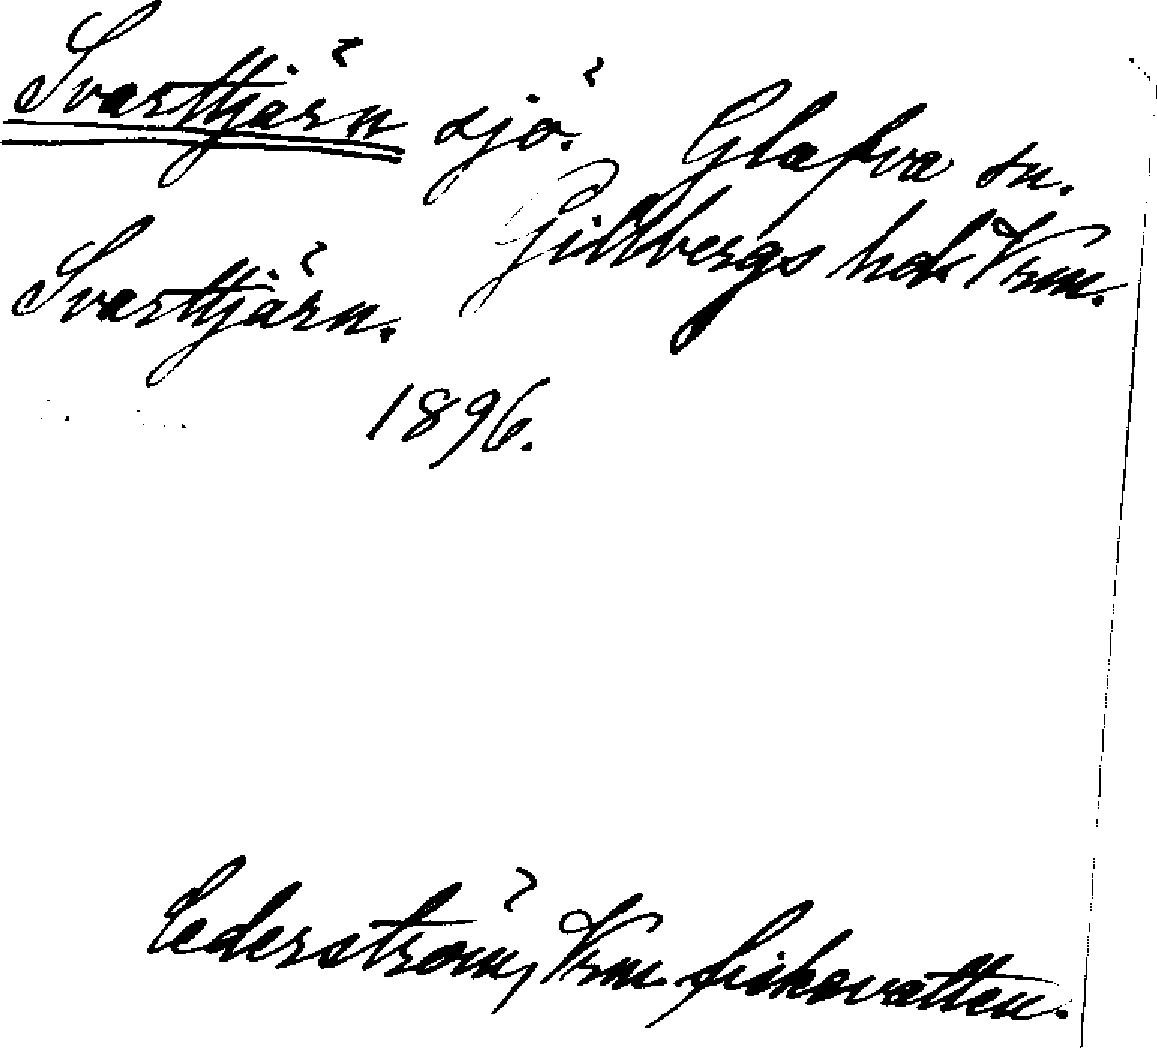 Svarttjärn sjö. Glafva sn.
Gillbergs hd Vrm.
Svarttjärn.
1896.
Cederström, Vrm. fiskevatten.